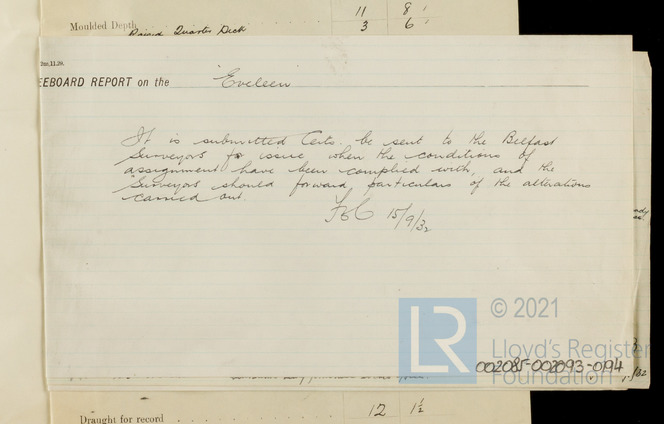 11 8
Moulded Depth
Raised Quarter Deck 3 6
2m,11,29.
EEBOARD REPORT on the "Eveleen"
It is submitted Certs. be sent to the Belfast
Surveyors to issue when the conditions of
assignment have been complied with, and the
Surveyors should forward particulars of the alterations
carried out.
15/9/32
© 2021
LR
Lloyd's Register
Foundation
002085-002093-0194
Draught for record 12 1½